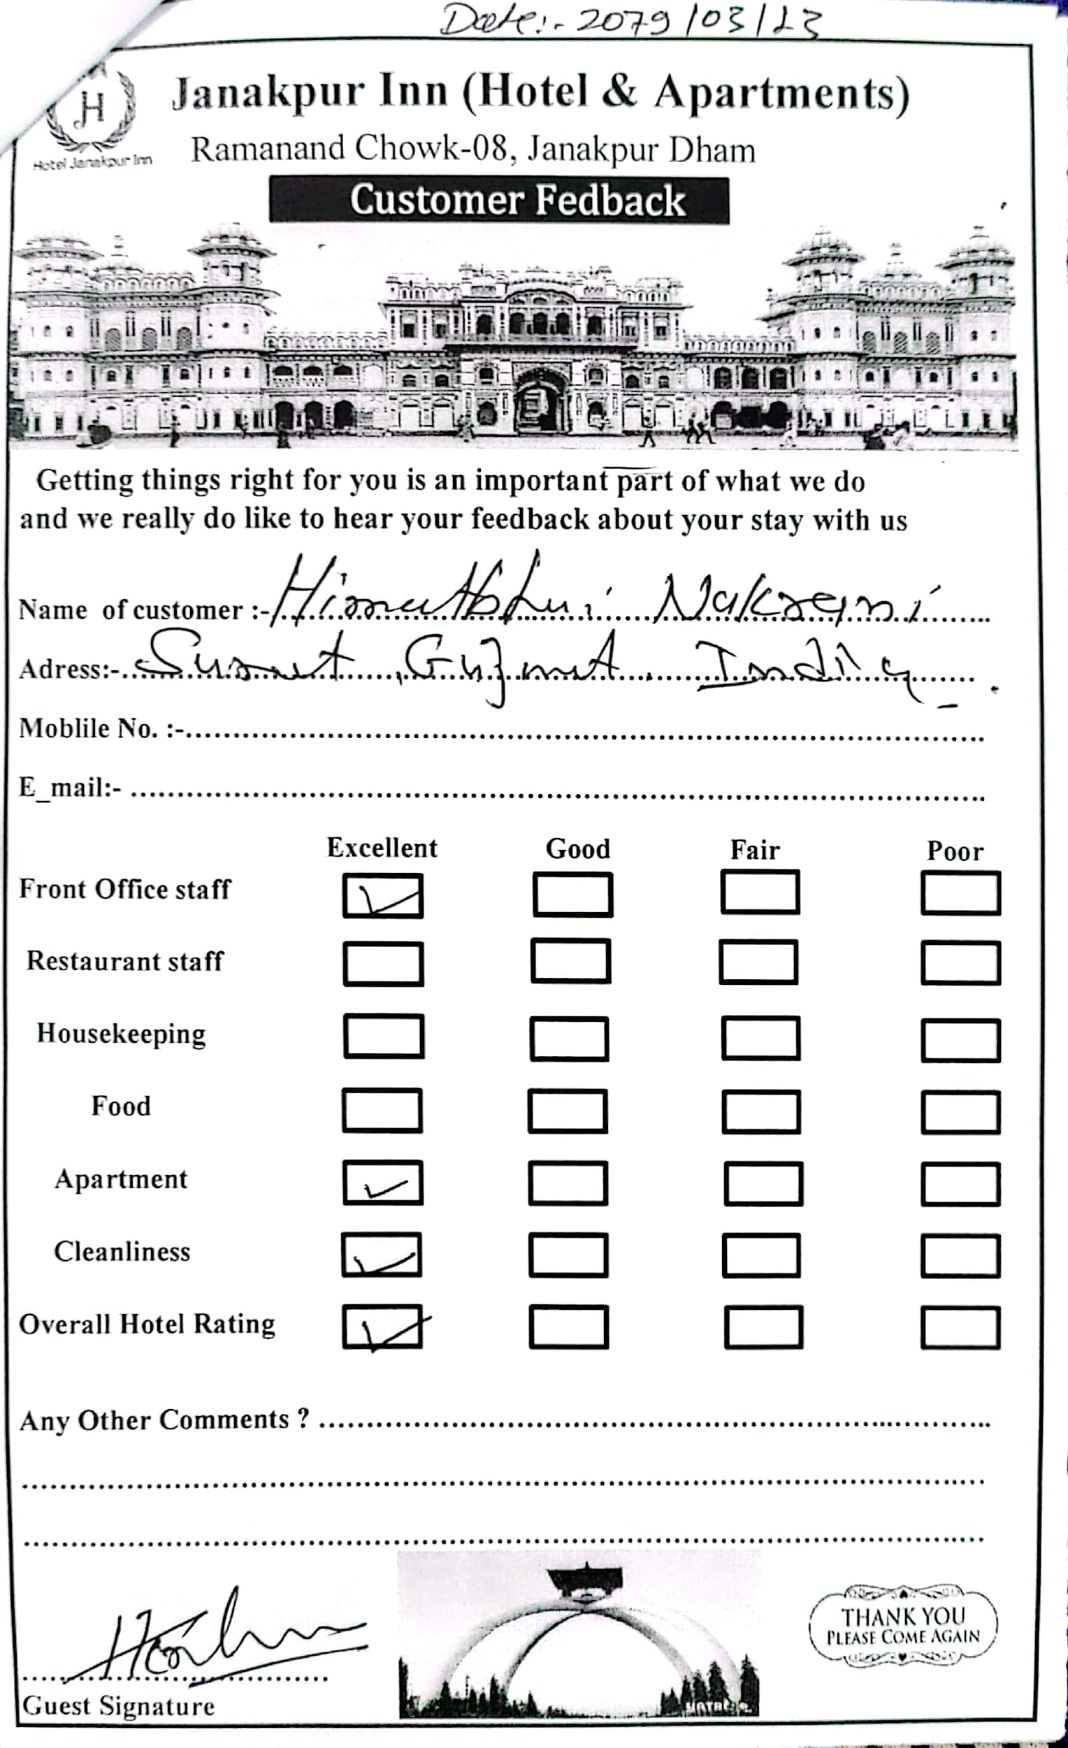 Date:- 2079/03/23
H
Hotel Janakpur Inn
Janakpur Inn (Hotel & Apartments)
Ramanand Chowk-08, Janakpur Dham
Customer Fedback
Getting things right for you is an important part of what we do
and we really do like to hear your feedback about your stay with us
Name of customer :- Himmatbhai Nakrani
Adress:- Surat, Gujrat. India
Moblile No. :-
E_mail:-
Excellent Good Fair Poor
Front Office staff
Restaurant staff
Housekeeping
Food
Apartment
Cleanliness
Overall Hotel Rating
Any Other Comments ?
Guest Signature
THANK YOU
PLEASE COME AGAIN